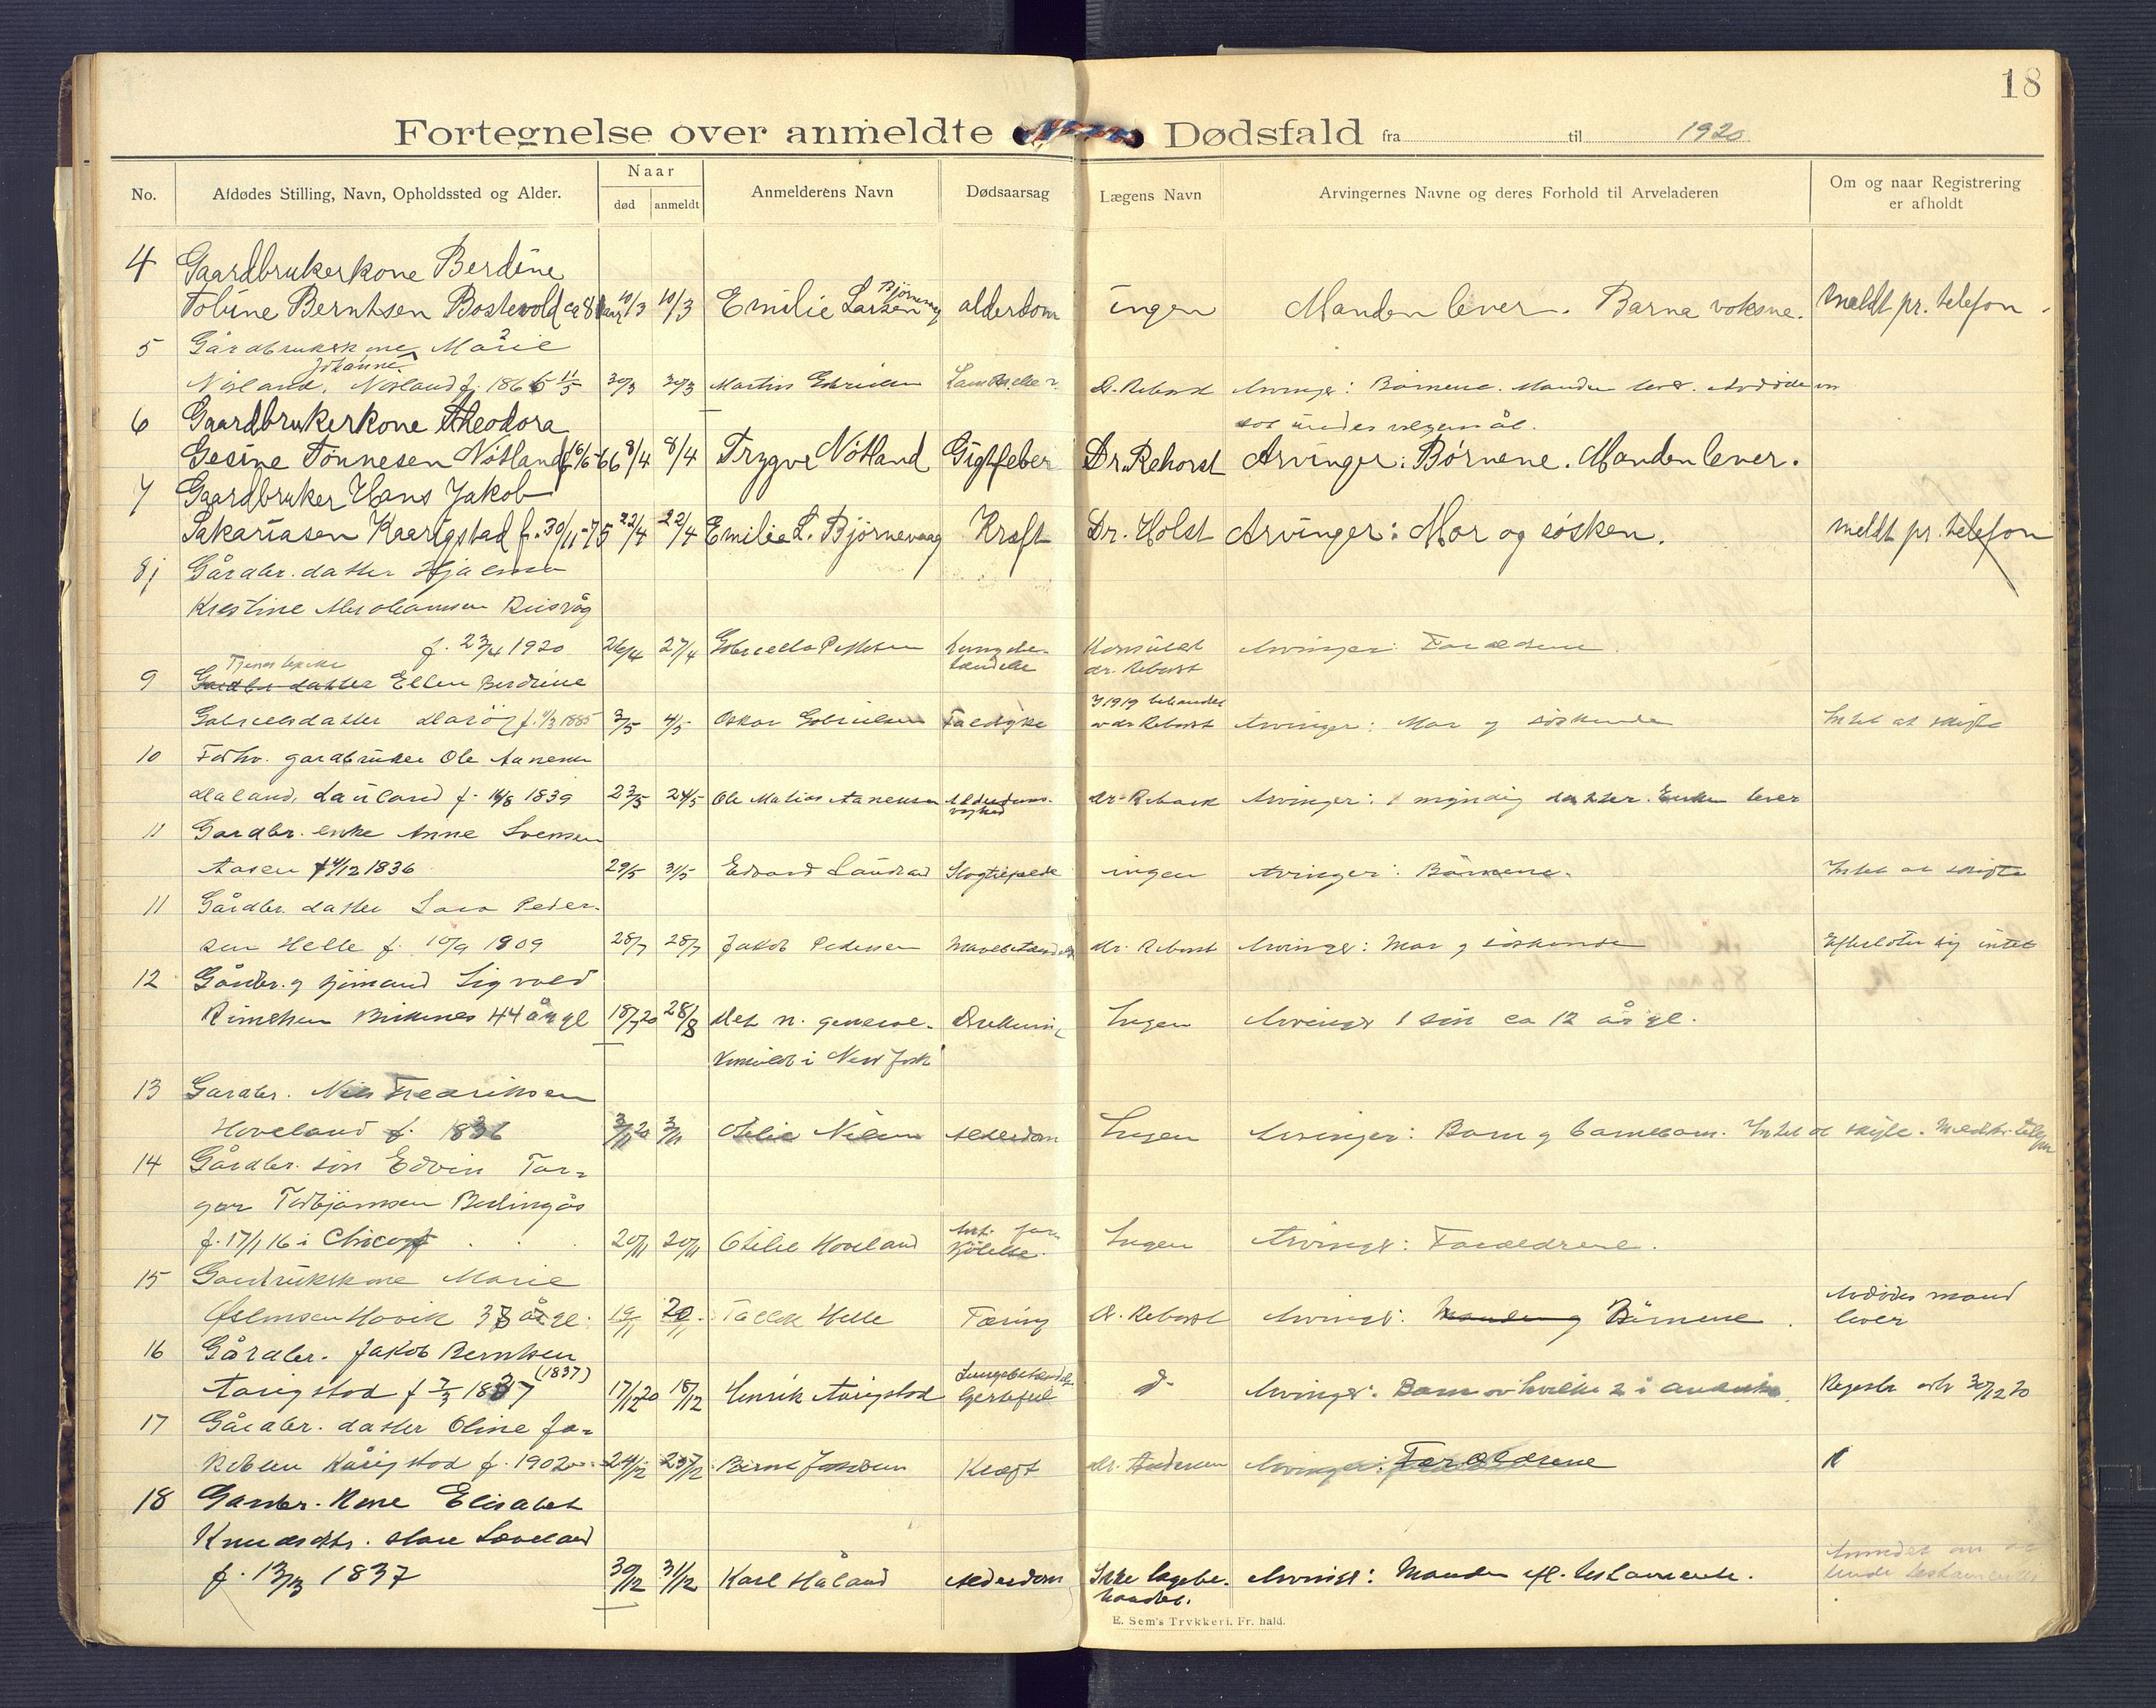 18
Fortegnelse over anmeldte Dødsfald fra til 1920
No. Afdødes Stilling, Navn, Opholdssted og Alder. Naar død anmeldt Anmelderens Navn Dødsaarsag Lægens Navn Arvingernes Navne og deres Forhold til Arveladeren Om og naar Registrering er afholdt
4 Gaardbrukerkone Berdine
Tobine Berntsen Bostvold ca 81 aar 10/3 10/3 Emilie Larsen Bjørnevaag alderdom ingen Manden lever. Barna voksne. meldt pr. telefon.
5 Gårdbrukerkone Marie
Johanne
Nøland, Nøland f. 1866 11/5 30/3 30/3 Martin Dr. Rehorst Arvinger: Børnene. Manden lever.
6 Gaardbrukerkone Theodora
Gesine Tønnesen Nótland f 6/6-66 8/4 8/4 Trygve Nótland Gigtfeber Dr. Rehorst Arvinger: Børnene. Manden lever.
7 Gaardbruker Hans Jakob
Sakariasen Kaarigstad f. 30/11-75 22/4 22/4 Emilie L. Bjørnevaag Kræft Dr. Holst Arvinger: Mor og søsken. meldt pr. telefon
8 Gårdbr. datter Hjalma
Kristine Abrahamsen Riisvåg
f. 23/4 1920 26/4 27/4 Gabriella Pettersen Lungebetændelse Konsulent dr. Rehorst Arvinger: Forældrene.
9 Tjenestepike Gardbr datter Ellen Berdine
Gabrielsdatter f. 4/3 1885 3/5 4/5 Oskar Gabrielsen Faldsyke I 1919 behandlet av dr Rehorst Arvinger: Mor og søskende Intet at skifte
10 Forhv. gardbruker Ole Aanensen
Haland, Lauland f. 14/8 1839 23/5 24/5 Ole Matias Aanensen Alderdomssvaghed dr. Rehorst Arvinger: 1 myndig datter. Enken lever
11 Gardbr. enke Anne Svensen
Aasen f 4/12 1836 29/5 31/5 Edvard Slagtilfælde ingen Arvinger: Børnene. Intet at skifte
11 Gårdbr. datter Sara Peder-
sen Helle f. 10/9 1909 28/7 28/7 Jakob Pedersen dr. Rehorst Arvinger: Mor og søskende Efterlater sig intet
12 Gårdbr. og sjømand Sigvald
Birkenes 44 år gl 18/7 20 28/8 Det n. general- Drukning Ingen Arvinger 1 søn ca 12 år gl.
konsulat i New York
13 Gardbr. Nils Fredriksen
Hoveland f. 1836 3/11 20 3/11 Otilie Nilsen Alderdom Ingen Arvinger: Barn og barnebarn. Intet at skifte. Meldt pr. telefon
14 Gårdbr. søn Edvin Tor-
ger Torbjørnsen
f. 17/1 16 i Chicago 20/11 20/11 Otilie Hoveland Ingen Arvinger: Forældrene.
15 Gardbrukerkone Marie
Hovik 38 år gl. 19/11 20/11 Tallek Helle Tæring dr. Rehorst Arvinger: Manden og Børnene. Avdødes mand lever
16 Gårdbr. Jakob Berntsen
Aarigstad f 7/3 1837 (1837) 17/12 20 18/12 Henrik Aarigstad Lungebetændelse Hjertefeil do Arvinger: Barn av hvilke 2 i Amerika. Registr avh 30/12 20
17 Gårdbr. datter Oline Ja-
kobsen Kårigstad f. 1902 24/12 27/12 Kræft dr. Andersen Arvinger: Forældrene
18 Gardbr. kone Elisabet
Knudsdtr.
f. 13/3 1837 30/12 31/12 Karl Håland Alderdom Ikke lægebe- Arvinger: Manden efl. testamente.
handlet.
E. Sem's Trykkeri, Fr. hald.